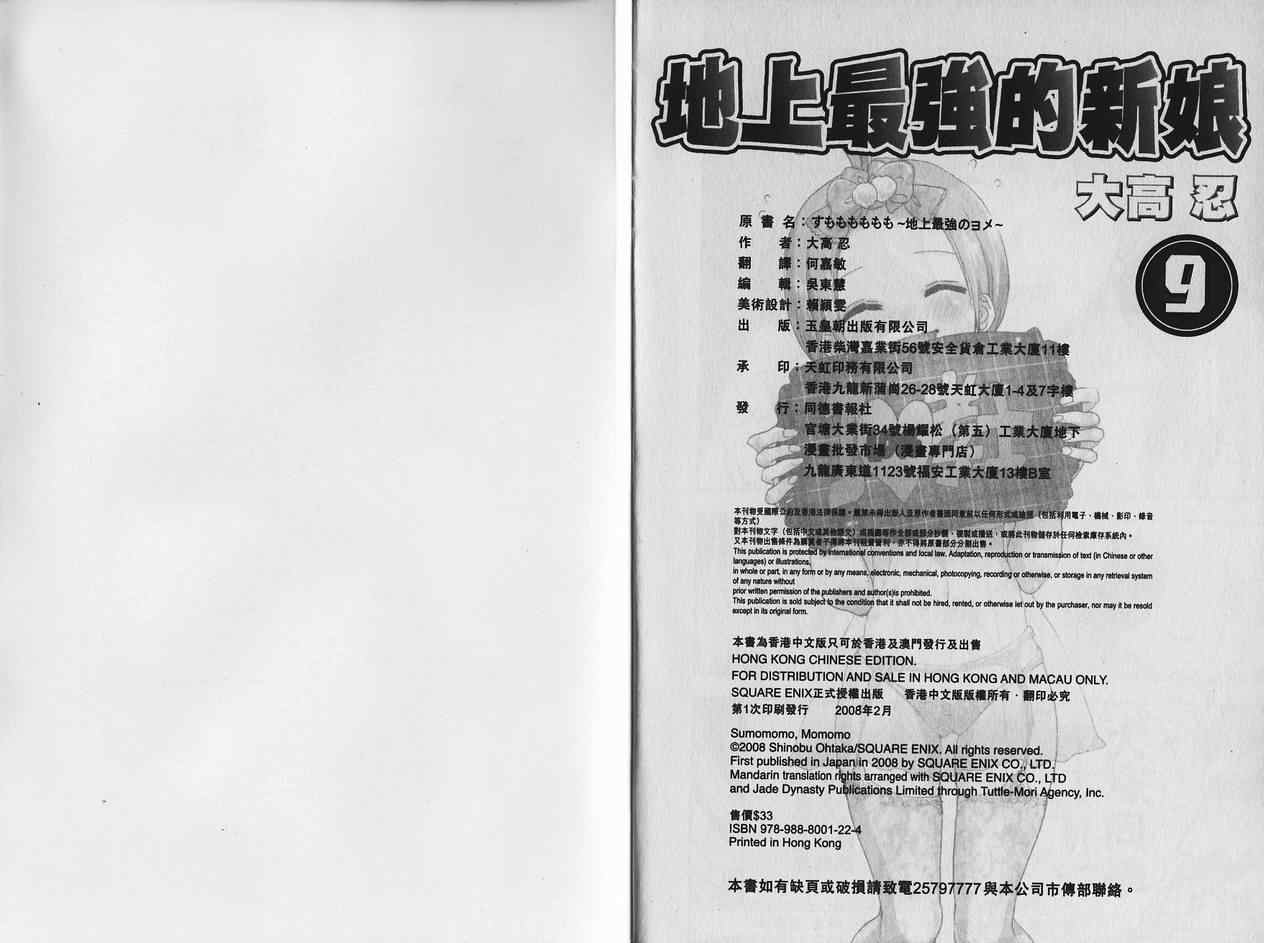 地上最強的新娘
大高 忍
9
原書名：すもももももも~地上最強のヨメ~
作者：大高 忍
翻譯：何嘉敏
編輯：吳東慧
美術設計：賴穎雯
出版：玉皇朝出版有限公司
香港柴灣嘉業街56號安全貨倉工業大廈11樓
承印：天虹印務有限公司
香港九龍新蒲崗26-28號天虹大廈1-4及7字樓
發行：同德書報社
官塘大業街34號楊耀松（第五）工業大廈地下
漫畫批發市場（漫畫專門店）
九龍廣東道1123號福安工業大廈13樓B室
本刊物受國際公約及香港法律保護。嚴禁未得出版人及原作者書面同意前以任何形式或途徑（包括利用電子、機械、影印、錄音
等方式）
對本刊物文字（包括中文或其他語文）或插圖等作全部或部分抄襲、複製或播送，或將此刊物儲存於任何檢索庫存系統內。
又本刊物出售條件為購買者不得將本刊租賃牟利，亦不得將原書部分分割出售。
This publication is protected by international conventions and local law. Adaptation, reproduction or transmission of text (in Chinese or other
languages) or illustrations,
in whole or part, in any form or by any means, electronic, mechanical, photocopying, recording or otherwise, or storage in any retrieval system
of any nature without
prior written permission of the publishers and author(s)is prohibited.
This publication is sold subject to the condition that it shall not be hired, rented, or otherwise let out by the purchaser, nor may it be resold
except in its original form.
本書為香港中文版只可於香港及澳門發行及出售
HONG KONG CHINESE EDITION.
FOR DISTRIBUTION AND SALE IN HONG KONG AND MACAU ONLY.
SQUARE ENIX正式授權出版 香港中文版版權所有·翻印必究
第1次印刷發行 2008年2月
Sumomomo, Momomo
©2008 Shinobu Ohtaka/SQUARE ENIX. All rights reserved.
First published in Japan in 2008 by SQUARE ENIX CO., LTD.
Mandarin translation rights arranged with SQUARE ENIX CO., LTD
and Jade Dynasty Publications Limited through Tuttle-Mori Agency, Inc.
售價$33
ISBN 978-988-8001-22-4
Printed in Hong Kong
本書如有缺頁或破損請致電25797777與本公司市傳部聯絡。